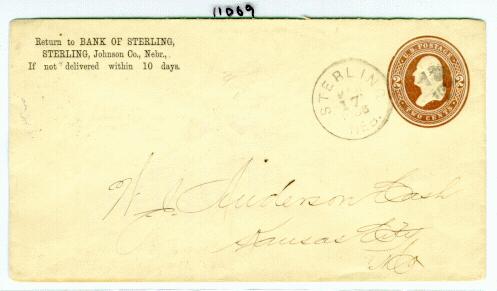 11069
Return to BANK OF STERLING,
STERLING, Johnson Co., Nebr.,
If not delivered within 10 days.
U.S. POSTAGE
TWO CENTS
STERLING
17
NEB.
W. J. Anderson Cash
Kansas City
Mo